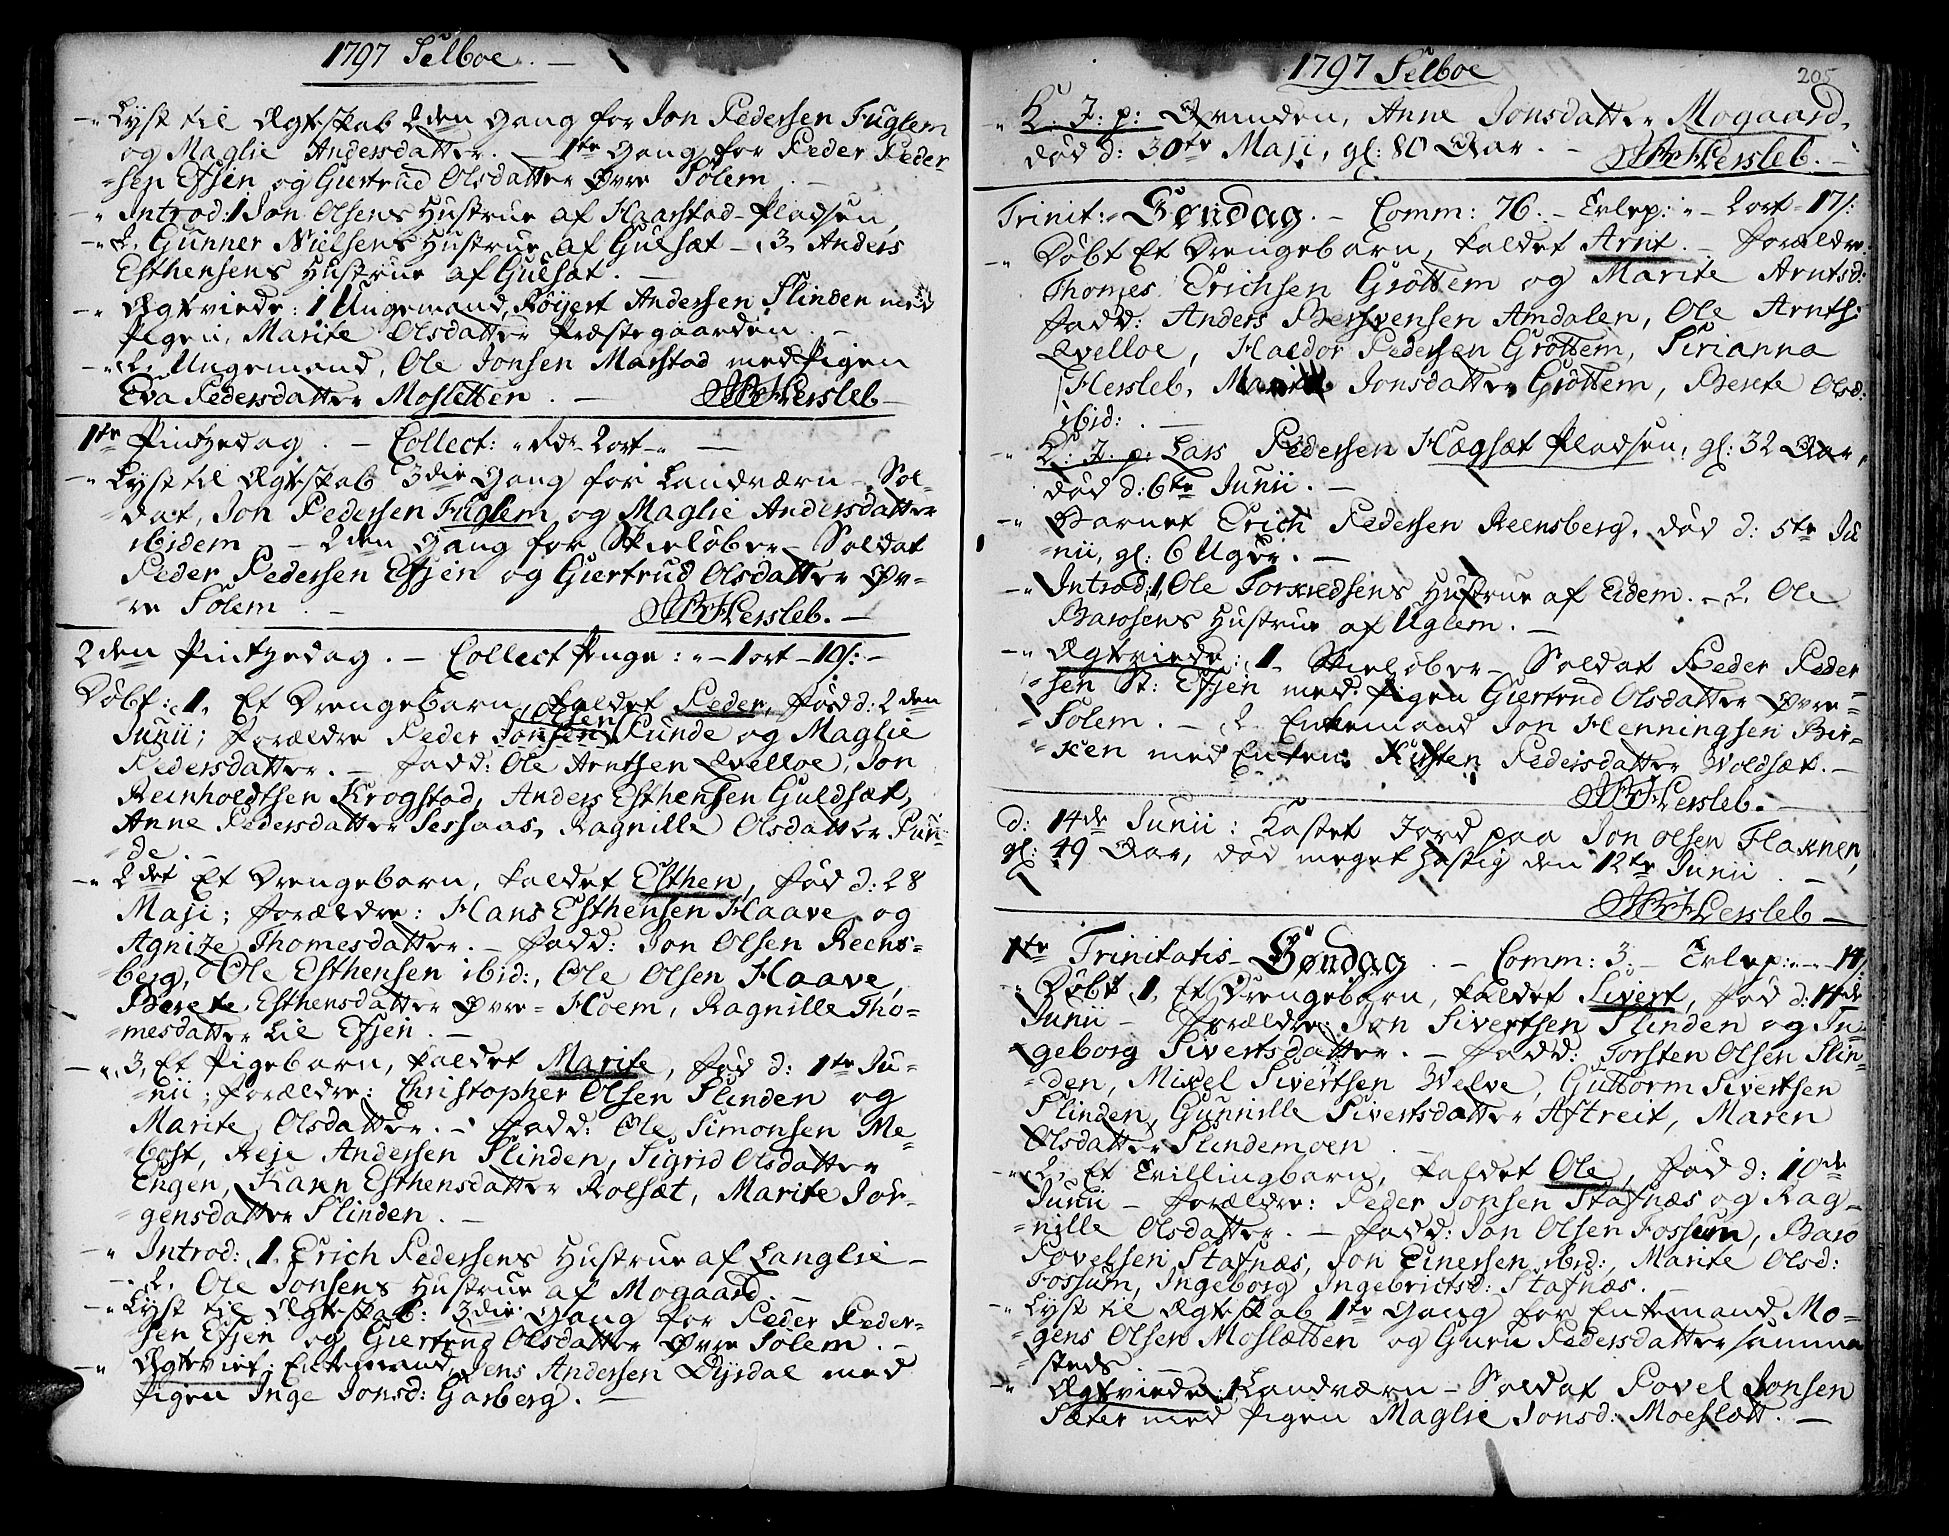 1797 Selboe. —
–" Lyst til Ægteskab 2den Gang for Jon Pedersen Fuglem
og Maglie Andersdatter. — 1te Gang for Peder Peder-
=sen Efsen og Giertrud Olsdatter Øvre Solem. —
–" Introd: 1 Jon Olsens Hustrue af Haarstad-Pladsen,
–" 2. Gunner Nielsens Hustrue af Gulsæt – 3, Anders
Esthensens Hustrue af Gulsæt. —
–" Ægtviede: 1 Ungemand, Røyert Andersen Slinden med
Pigen, Marite Olsdatter Præstegaarden. —
–" 2. Ungemand, Ole Jonsen Marstad med Pigen
Eva Pedersdatter Mosletten. — Hersleb —
1te Pintzedag. — Collect: " Rdr 2 ort " —
–" Lyst til Ægteskab 3die Gang for Landværn – Sol-
=dat, Jon Pedersen Fuglem og Maglie Andersdatter
ibidem. — 2den Gang for Skieløber – Soldat
Peder Pedersen Efsen og Giertrud Olsdatter Øv-
=re Solem. — Hersleb. —
2den Pintzedag. — Collect Penge: " – 1 ort – 10 /: –
Døbt: 1. Et Drengebarn, kaldet Peder, fød d: 2den
Junii; Forældre Peder Jonsen Olsen Punde og Maglie
Pedersdatter. — Fadd: Ole Arntsen Qvelloe, Jon
Reinholdtsen Krogstad, Anders Esthensen Guldsæt,
Anne Pedersdatter Sessaas, Ragnille Olsdatter Pun-
=de. —
–" 2det Et Drengebarn, kaldet Esthen, fød d: 28
Maji; forældre: Hans Esthensen Haave og
Agnize Thomesdatter. — Fadd: Jon Olsen Reens-
=berg, Ole Esthensen ibid:, Ole Olsen Haave,
Berete Esthensdatter Øvre=Hoem, Ragnille Tho-
=mesdatter Lil Efsen. —
–" 3, Et Pigebarn, kaldet Marite, fød d: 1te Ju-
=nii; forældre: Christopher Olsen Slinden og
Marite Olsdatter. — Fadd: Ole Simonsen Me-
=bost, Reje Andersen Slinden, Sigrid Olsdatter
Engen, Karn Esthensdatter Rolsæt, Marite Jør-
=gensdatter Slinden. —
–" Introd: 1. Erich Pedersens Hustrue af Langlie –
–" 2. Ole Jonsens Hustrue af Mogaard. —
–" Lyst til Ægteskab: 3die Gang for Peder Peder-
=sen Efsen og Giertrud Olsdatter Øvre Solem. —
–" Ægtviet: Enkemand, Jens Andersen Dyrdal med
Pigen Inge Jonsd: Garberg. —
1797 Selboe 205
" K: J: p: Qvinden, Anne Jonsdatter Mogaard,
død d: 30te Maji, gl: 80 Aar. — Hersleb. —
Trinit: – Søndag. — Comm: 76. – Erlep: " – 2 ort – 17 /:
–" Døbt Et Drengebarn, kaldet Arnt. — Forældre
Thomes Erichsen Grøttem og Marite Arntsd:
Fadd: Anders Bersvensen Amdalen, Ole Arnts:
Qvelloe, Haldor Pedersen Grøttem, Sirianna
Hersleb, Marite Jonsdatter Grøttem, Berete Olsd:
ibid: —
–" K: J: p: Lars Pedersen Hægsæt Pladsen, gl: 32 Aar,
død d: 6te Junii. —
–" Barnet Erich Pedersen Reensberg, død d: 5te Ju
=nii, gl: 6 Uger. —
–" Introd: 1, Ole Torkildsens Hustrue af Eidem. – 2. Ole
Barosens Hustrue af Uglem. —
–" Ægtviede: 1. Skieløber – Soldat Peder Peder-
=sen St: Efsen med Pigen Giertrud Olsdatter Øvre-
=Solem. — 2. Enkemand Jon Henningsen Bir-
=ken med Enken Kirsten Pedersdatter Woldsæt. —
Hersleb. —
d: 14de Junii: Kastet Jord paa Jon Olsen Flaknen,
gl: 49 Aar, død meget hastig den 12te Junii. —
Hersleb —
1te Trinitatis – Søndag. — Comm: 3. – Erlep: " – " – 14 /:
–" Døbt 1. Et Drengebarn, kaldet Sivert, fød d: 14de
Junii – Forældre: Jon Sivertsen Slinden og In-
=geborg Sivertsdatter. — Fadd: Torsten Olsen Slin-
=den, Mikel Sivertsen Welve, Guttorm Sivertsen
Slinden, Gunnille Sivertsdatter Aftreit, Maren
Olsdatter Slindemoen. —
–" 2. Et Tvillingbarn, kaldet Ole, fød d: 10de
Junii – Forældre: Peder Jonsen Stafnæs og Rag-
=nille Olsdatter. — Fadd: Jon Olsen Fossum, Baro
Povelsen Stafnæs, Jon Einersen ibid:, Marite Olsd:
Fossum, Ingeborg Ingebrictsd: Stafnæs. —
–" Lyst til Ægteskab 1te Gang for Enkemand Mo-
=gens Olsen Moslætten og Guru Pedersdatter samme-
=steds. —
–" Ægtviede: 1 Landværn – Soldat Povel Jonsen
Sæter med Pigen Maglie Jonsd: Moeslætt. —